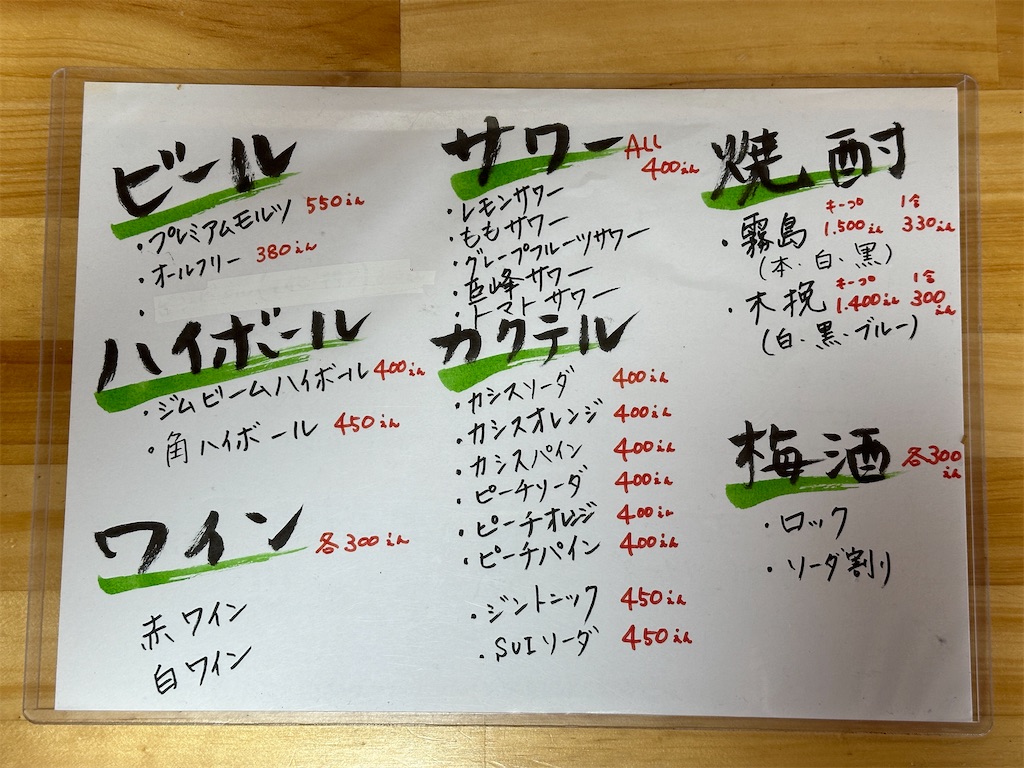 ビール
・プレミアムモルツ 550えん
・オールフリー 380えん
・
ハイボール
・ジムビームハイボール 400えん
・角ハイボール 450えん
ワイン 各300えん
赤ワイン
白ワイン
サワー ALL 400えん
・レモンサワー
・ももサワー
・グレープフルーツサワー
・巨峰サワー
・トマトサワー
カクテル
・カシスソーダ 400えん
・カシスオレンジ 400えん
・カシスパイン 400えん
・ピーチソーダ 400えん
・ピーチオレンジ 400えん
・ピーチパイン 400えん
・ジントニック 450えん
・SUIソーダ 450えん
焼酎
キープ 1合
・霧島 1.500えん 330えん
(本、白、黒)
キープ 1合
・木挽 1.400えん 300えん
(白、黒、ブルー)
梅酒 各300えん
・ロック
・ソーダ割り